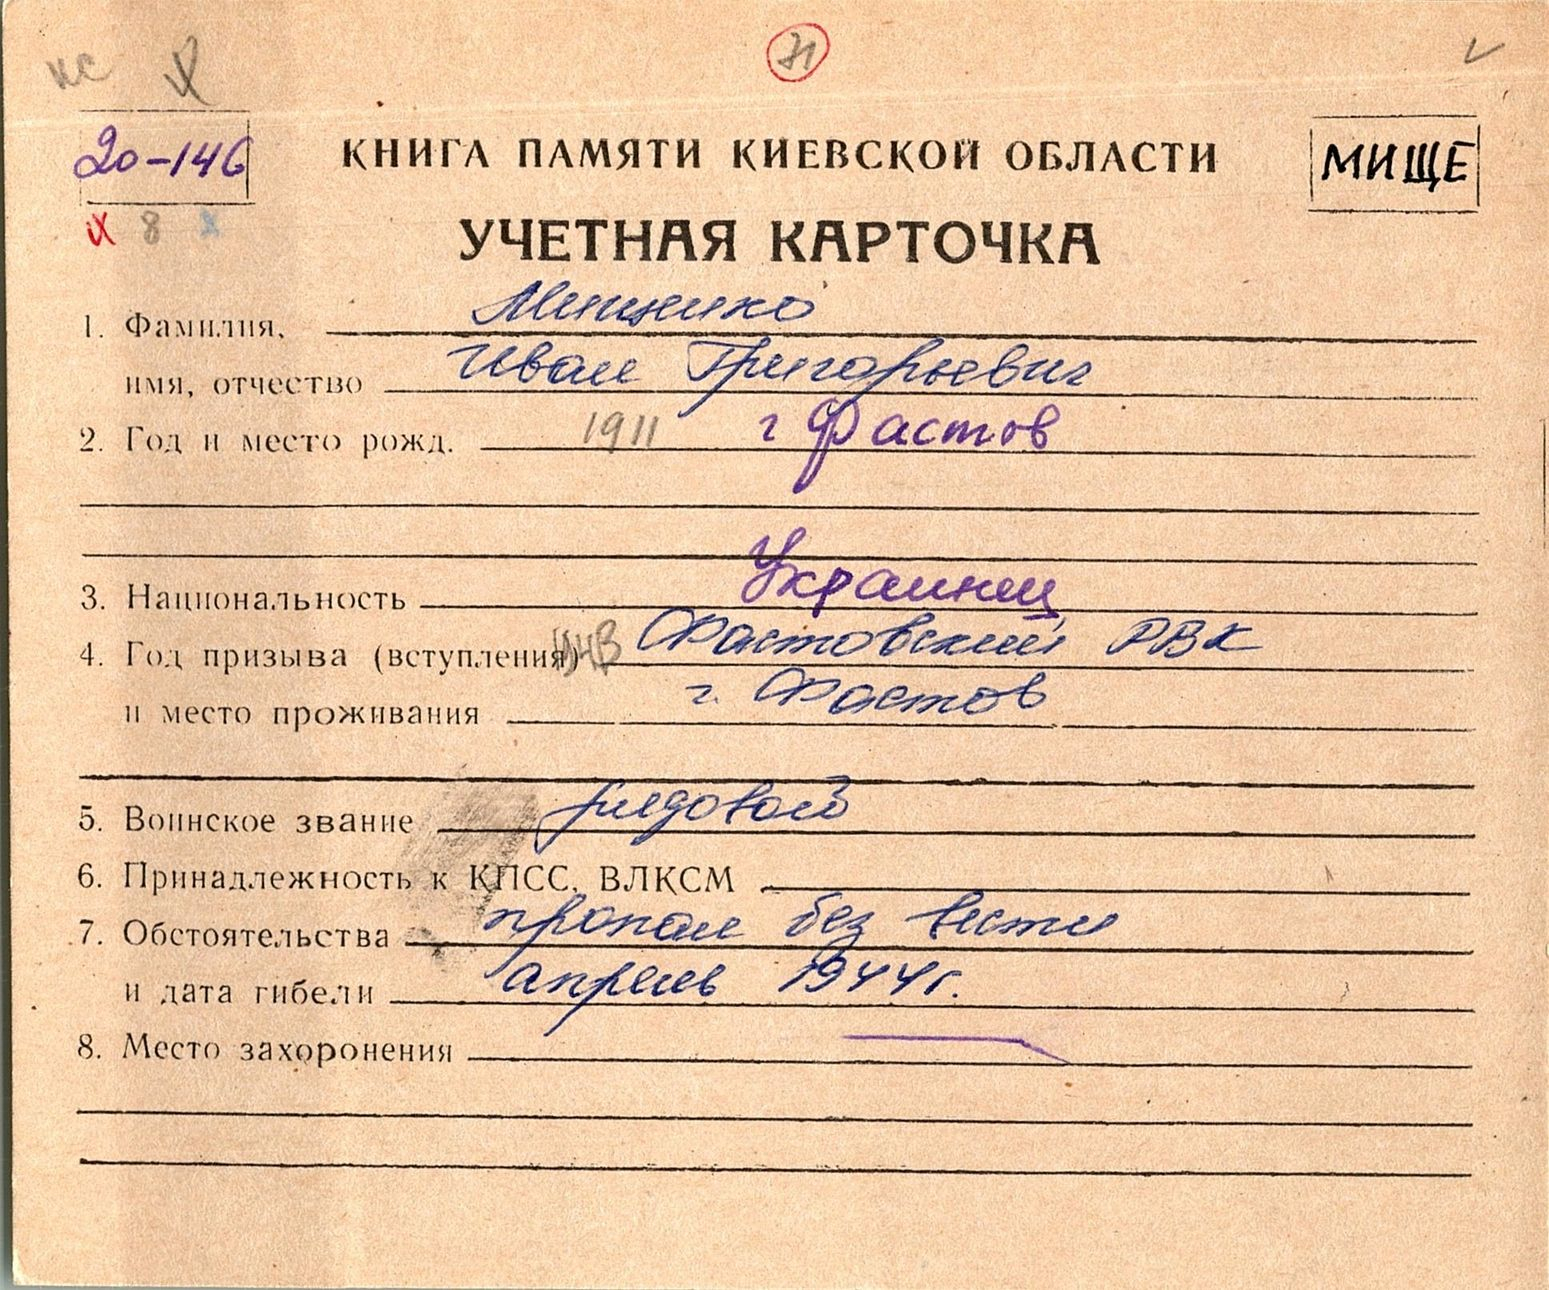 нс
20-146
КНИГА ПАМЯТИ КИЕВСКОЙ ОБЛАСТИ
МИЩЕ
8
УЧЕТНАЯ КАРТОЧКА
1. Фамилия, Мищенко
имя, отчество Иван Григорьевич
2. Год и место рожд. 1911 г Фастов
3. Национальность Украинец
4. Год призыва (вступления) Фастовский РВК
и место проживания г. Фастов
5. Воинское звание рядовой
6. Принадлежность к КПСС, ВЛКСМ
7. Обстоятельства пропал без вести
и дата гибели апрель 1944г.
8. Место захоронения